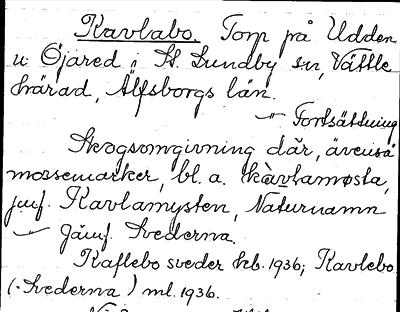 Kavlabo. Torp på Udden
u. Öjared i St. Lundby sn, Vättle
härad, Älfsborgs län.
—"— Fortsättning
Skogsomgivning där, ävenså
mossemarker, bl. a. kàvlamøsta,
jmf. Kavlamysten, Naturnamn
—"— Jämf. Svederna.
Kaflebo sveder hb. 1936; Kavlebo
(-Svederna) ml. 1936.